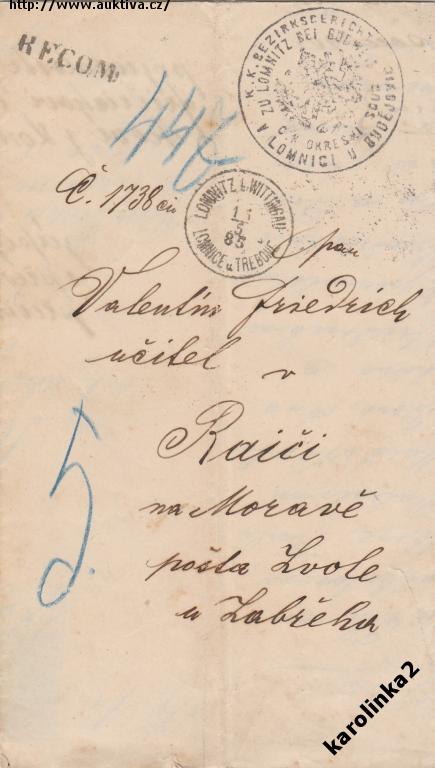 http://www.auktiva.cz/
RECOM.
446
K.K. BEZIRKSGERICHT ZU LOMNITZ BEI BUDWEIS
C.K. OKRESNÍ SOUD A LOMNICI U BUDĚJOVIC
Č. 1738 civ
LOMNITZ b. WITTINGAU
5
85
LOMNICE u TŘEBONĚ
pan
Valentin Friedrich
učitel
v
Raiči
na Moravě
pošta Zvole
u Zabřeha
5.
karolinka2